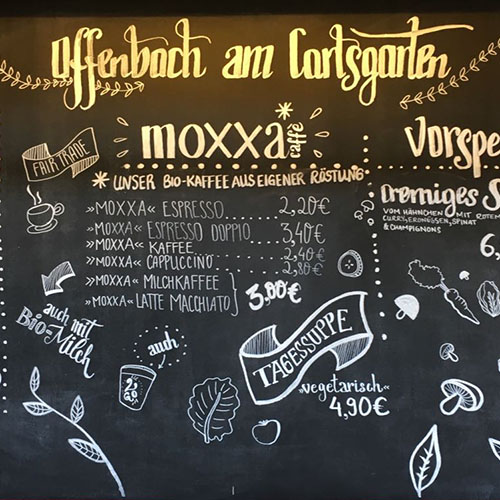 Offenbach am Cartsgarten
FAIR TRADE
moxxa*
caffè
VORSPE
* UNSER BIO-KAFFEE AUS EIGENER RÖSTUNG
»MOXXA« ESPRESSO 2,20€
»MOXXA« ESPRESSO DOPPIO 3,40€
»MOXXA« KAFFEE 2,40€
»MOXXA« CAPPUCCINO 2,80€
»MOXXA« MILCHKAFFEE
»MOXXA« LATTE MACCHIATO 3,00€
Cremiges S
VOM HÄHNCHEN MIT ROTEM
CURRY, ERDNÜSSEN, SPINAT
& CHAMPIGNONS
6,
auch mit
Bio-Milch
auch
to
go
TAGESSUPPE
„vegetarisch“
4,90€